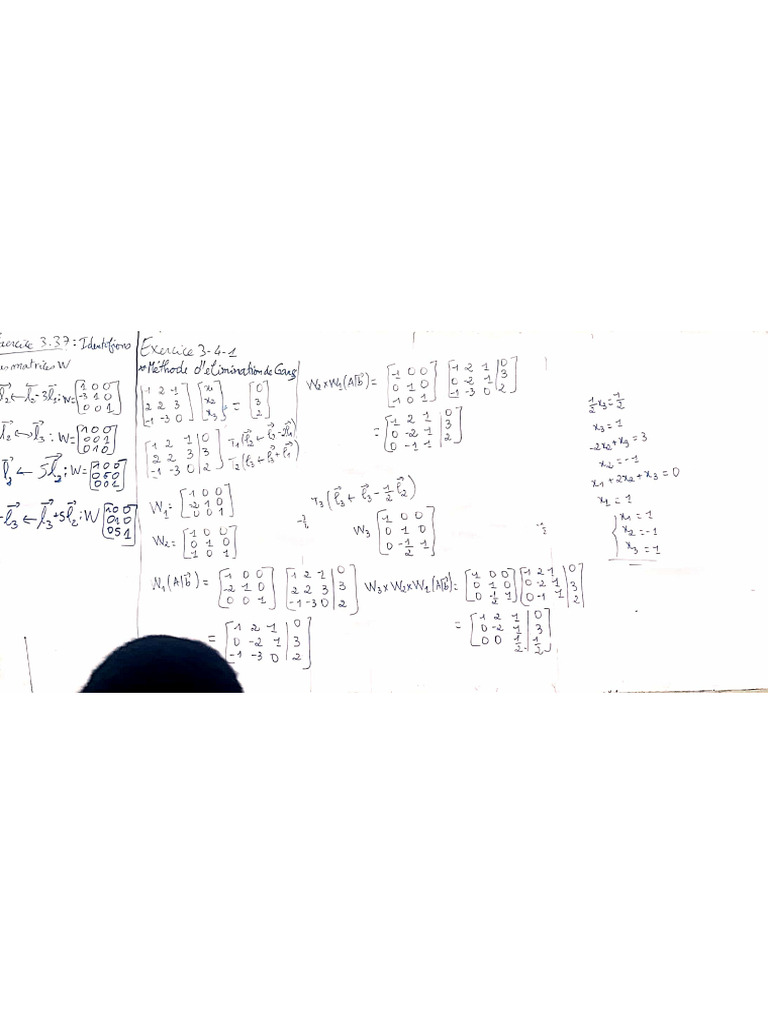 Exercice 3.37: Identifions
les matrices W
l⃗₂ ← l⃗₂ - 3l⃗₁ : W = [1 0 0; -3 1 0; 0 0 1]
l⃗₂ ↔ l⃗₃ : W = [1 0 0; 0 0 1; 0 1 0]
l⃗₂ ← 5l⃗₂ ; W = [1 0 0; 0 5 0; 0 0 1]
l⃗₃ ← l⃗₃ + 5l⃗₂ : W [1 0 0; 0 1 0; 0 5 1]
Exercice 3-4-1
Méthode d'elimination de Gauß
[1 2 1; 2 2 3; -1 -3 0] [x₁; x₂; x₃] = [0; 3; 2]
[1 2 1 | 0; 2 2 3 | 3; -1 -3 0 | 2] T₁(l⃗₂ ← l⃗₂ - 2l⃗₁)
T₂(l⃗₃ ← l⃗₃ + l⃗₁)
W₁ = [1 0 0; -2 1 0; 0 0 1]
W₂ = [1 0 0; 0 1 0; 1 0 1]
W₁(A|b⃗) = [1 0 0; -2 1 0; 0 0 1] [1 2 1 | 0; 2 2 3 | 3; -1 -3 0 | 2]
= [1 2 1 | 0; 0 -2 1 | 3; -1 -3 0 | 2]
W₂ x W₁(A|b⃗) = [1 0 0; 0 1 0; 1 0 1] [1 2 1 | 0; 0 -2 1 | 3; -1 -3 0 | 2]
= [1 2 1 | 0; 0 -2 1 | 3; 0 -1 1 | 2]
T₃(l⃗₃ ← l⃗₃ - ½ l⃗₂)
W₃ [1 0 0; 0 1 0; 0 -½ 1]
W₃ x W₂ x W₁(A|b⃗) = [1 0 0; 0 1 0; 0 -½ 1] [1 2 1 | 0; 0 -2 1 | 3; 0 -1 1 | 2]
= [1 2 1 | 0; 0 -2 1 | 3; 0 0 ½ | ½]
½x₃ = ½
x₃ = 1
-2x₂ + x₃ = 3
x₂ = -1
x₁ + 2x₂ + x₃ = 0
x₁ = 1
x₁ = 1
x₂ = -1
x₃ = 1